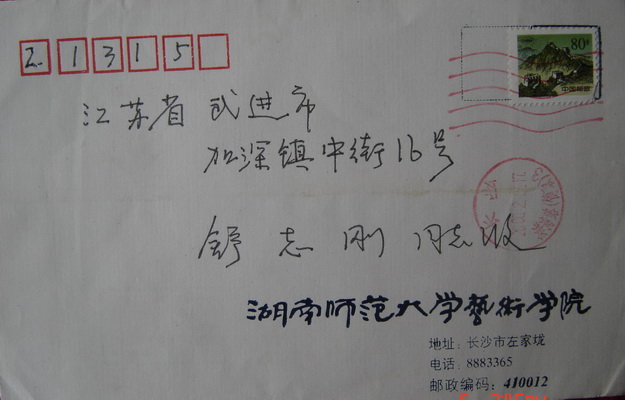 213 15
80分
中国邮政
江苏省 武进市
加深镇中街16号
舒志刚 同志收
湖南师范大学藝術学院
地址: 长沙市左家垅
电话: 8883365
邮政编码: 410012